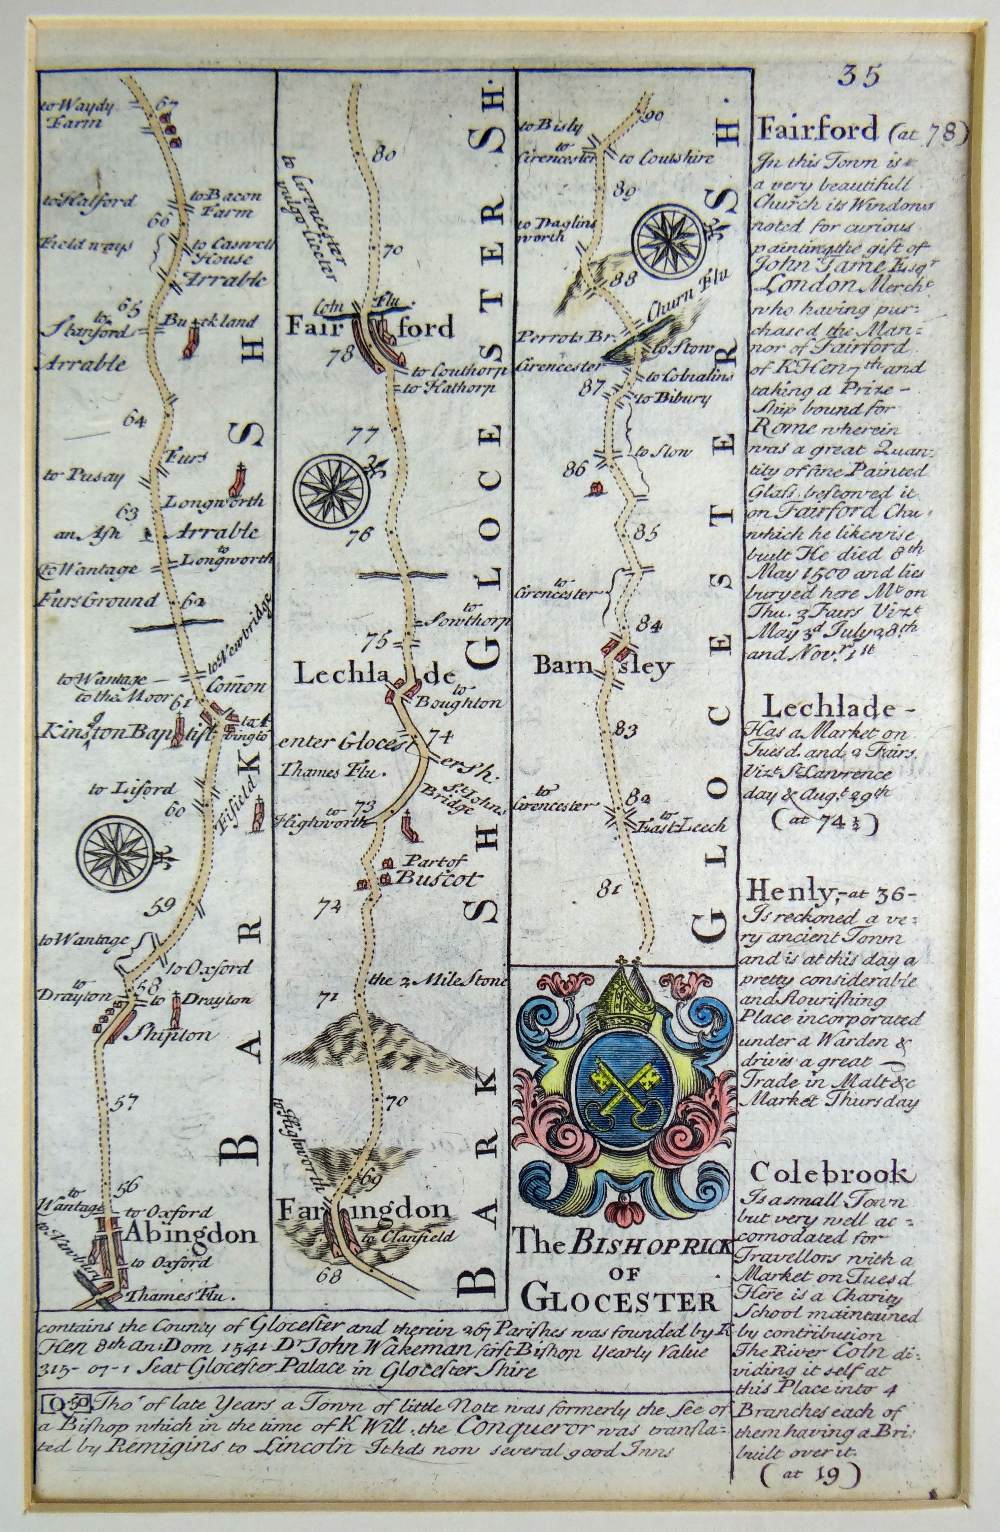 35
to Waydy
Farm
67
to Halford
to Bacon
Farm
66
Field ways
to Caswell
House
Arrable
65
to
Stanford
Buckland
Arrable
64
Furs
to Pusay
Longworth
63
an Ash
Arrable
to Wantage
to
Longworth
Furs Ground
62
to Newbridge
to Wantage
to the Moor
61
Comon
Kingston Baptist
to A
bington
to Liford
60
Fifield
59
to Wantage
to Oxford
58
to
Drayton
to Drayton
Shipton
57
56
to
Wantage
to Oxford
Abingdon
to Newbury
to Oxford
Thames Flu.
BARK SH
80
to Cirencester
vulgo Ciceter
70
Coln Flu.
Fairford
78
to Couthorp
to Hathorp
77
76
to
Sowthorp
75
Lechlade
to
Boughton
74
enter Glocestersh.
Thames Flu.
St Johns
Bridge
73
to
Highworth
Part of
Buscot
72
the 2 Mile Stone
71
70
to Highworth
69
Faringdon
to Clanfield
68
BARK SH
GLOCESTER SH.
90
to Bisly
to
Cirencester
to Coutshire
89
to Daglins
worth
88
Churn Flu
Perrots Br.
to Stow
Cirencester
to Colnalins
87
to Bibury
to Stow
86
85
to
Cirencester
84
Barnsley
83
82
to
Cirencester
to
East Leech
81
GLOCESTER SH.
The BISHOPRICK
OF
GLOCESTER
contains the County of Glocester and therein 267 Parishes was founded by K
Hen 8th an: Dom 1541 Dr John Wakeman first Bishop Yearly Value
315-07-1 Seat Glocester Palace in Glocester Shire
Tho' of late Years a Town of little Note was formerly the See of
a Bishop which in the time of K Will. the Conqueror was transla=
ted by Remigins to Lincoln It hds now several good Inns
Fairford (at 78)
In this Town is
a very beautifull
Church its Windows
noted for curious
painting the gift of
John Tame Esqr
London Mercht
who having pur=
chased the Man=
nor of Fairford
of K Hen 7th and
taking a Prize-
Ship bound for
Rome wherein
was a great Quan=
tity of fine Painted
Glass, bestowed it
on Fairford Chu:
which he likewise
built He died 8th
May 1500 and lies
buryed here Mt on
Thu. 3 Fairs Vizt
May 3d July 28th
and Novr 1st
Lechlade-
Has a Market on
Tuesd. and 2 Fairs
Vizt St Lawrence
day & Augt 29th
(at 74½)
Henly,-at 36-
Is reckoned a ve=
ry ancient Town
and is at this day a
pretty considerable
and flourishing
Place incorporated
under a Warden &
drives a great
Trade in Malt &c
Market Thursday
Colebrook
Is a small Town
but very well ac=
comodated for
Travellors with a
Market on Tuesd
Here is a Charity
School maintained
by contribution
The River Coln di=
viding it self at
this Place into 4
Branches each of
them having a Bri:
built over it.
(at 19)